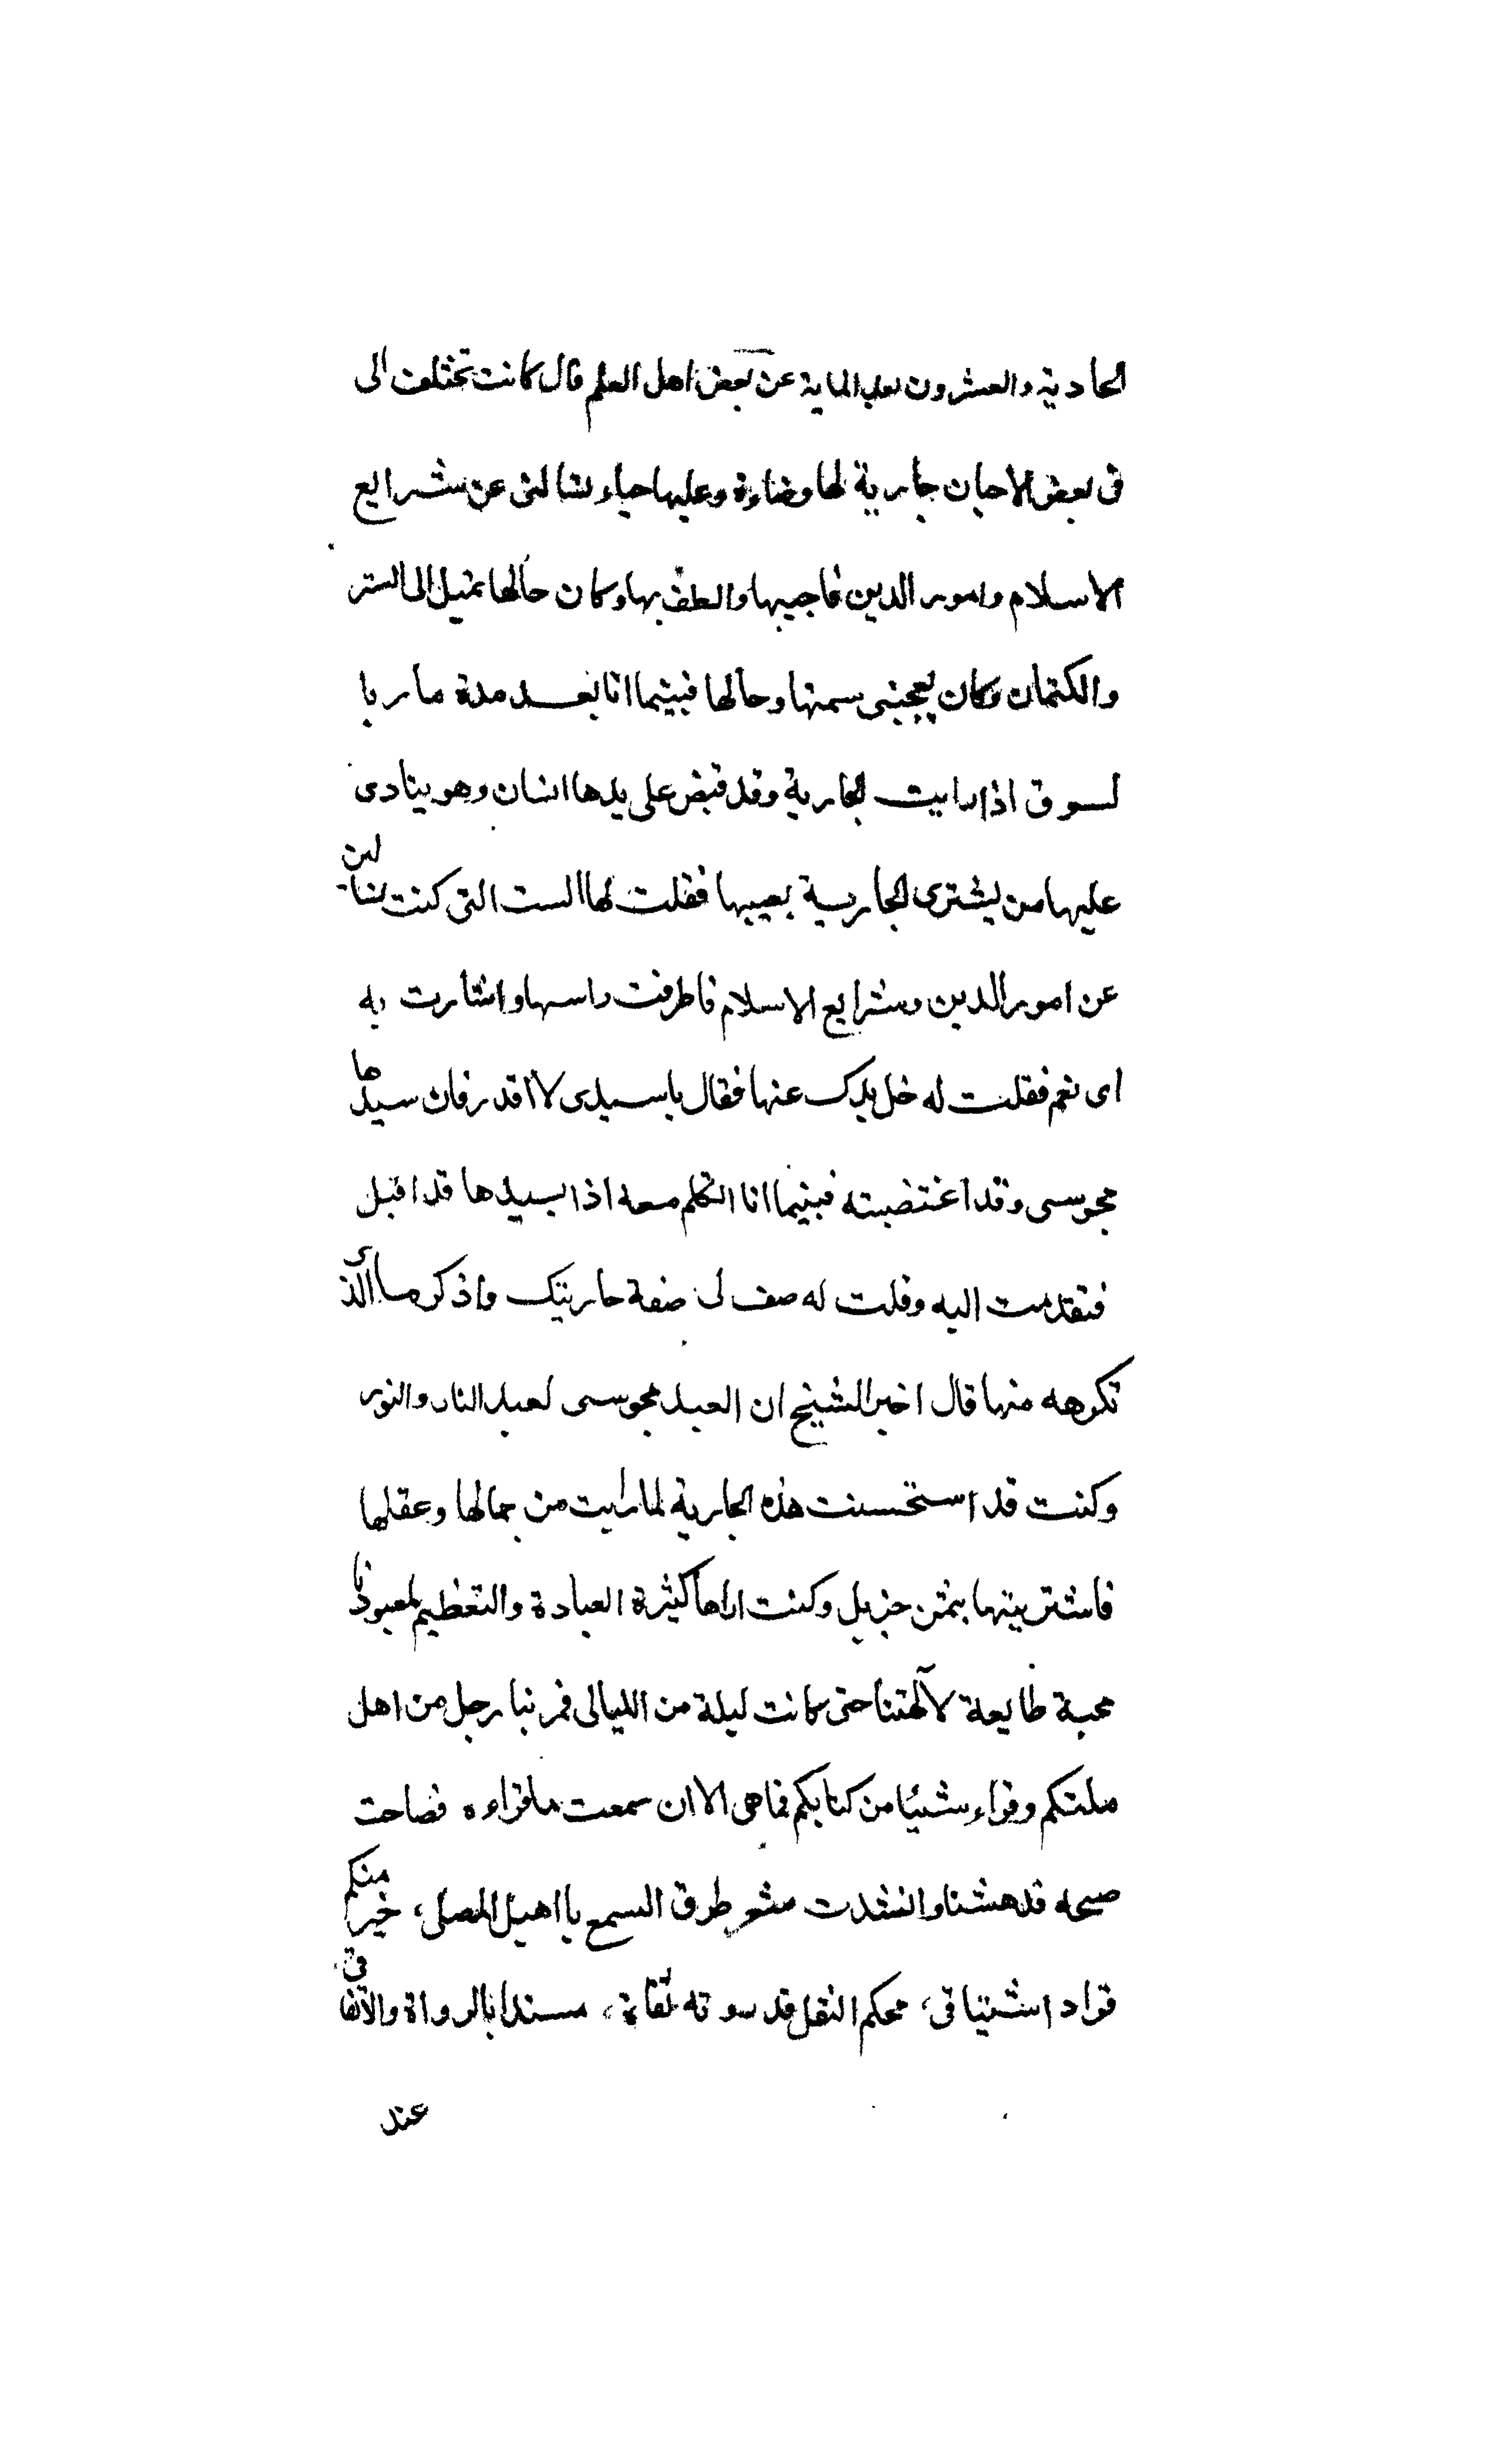 الحادية والعشرون بعد الماية عن بعض اهل العلم قال كانت تختلف الى
فى بعض الاحيان جارية لها وضاءة وعليها حياء تسالنى عن شرايع
الاسلام وامور الدين فاجيبها والطف بها وكان حالها تميل الى الستر
والكتمان وكان يعجبنى سمتها وحالها فبينما انا بعد مدة مار با
لسوق اذ رايت الجارية وقد قبض على يدها انسان وهو ينادى
عليها من يشترى الجارية بعيبها فقلت لها الست التى كنت تسالين
عن امور الدين وشرايع الاسلام فاطرقت راسها واشارت به
اى نعم فقلت له خل يدك عنها فقال ياسيدى لا اقدر فان سيدها
مجوسى وقد اغتضبته فبينما انا اتكلم معه اذا بسيدها قد اقبل
فتقدمت اليه وقلت له صف لى صفة جاريتك واذكر ما الذى
تكرهه منها قال اخبر الشيخ ان العبد مجوسى لعبد النار والنور
وكنت قد استحسنت هذه الجارية لما رايت من جمالها وعقلها
فاشتريتها بثمن جزيل وكنت اراها كثيرة العبادة والتعظيم لمعبوذنا
محبة طايعة لآلهتنا حتى كانت ليلة من الليالى فمر بنا رجل من اهل
ملتكم وقراء شيئا من كتابكم فما هى الا ان سمعت ما قراءه فصاحت
صيحه قدهشنا وانشدت شعر طرق السمع يا اهيل المصلى، خبر منكم
فزاد اشتياقى، محكم النقل قد روته ثقاة، مسندا بالرواة والاتفاق
عند